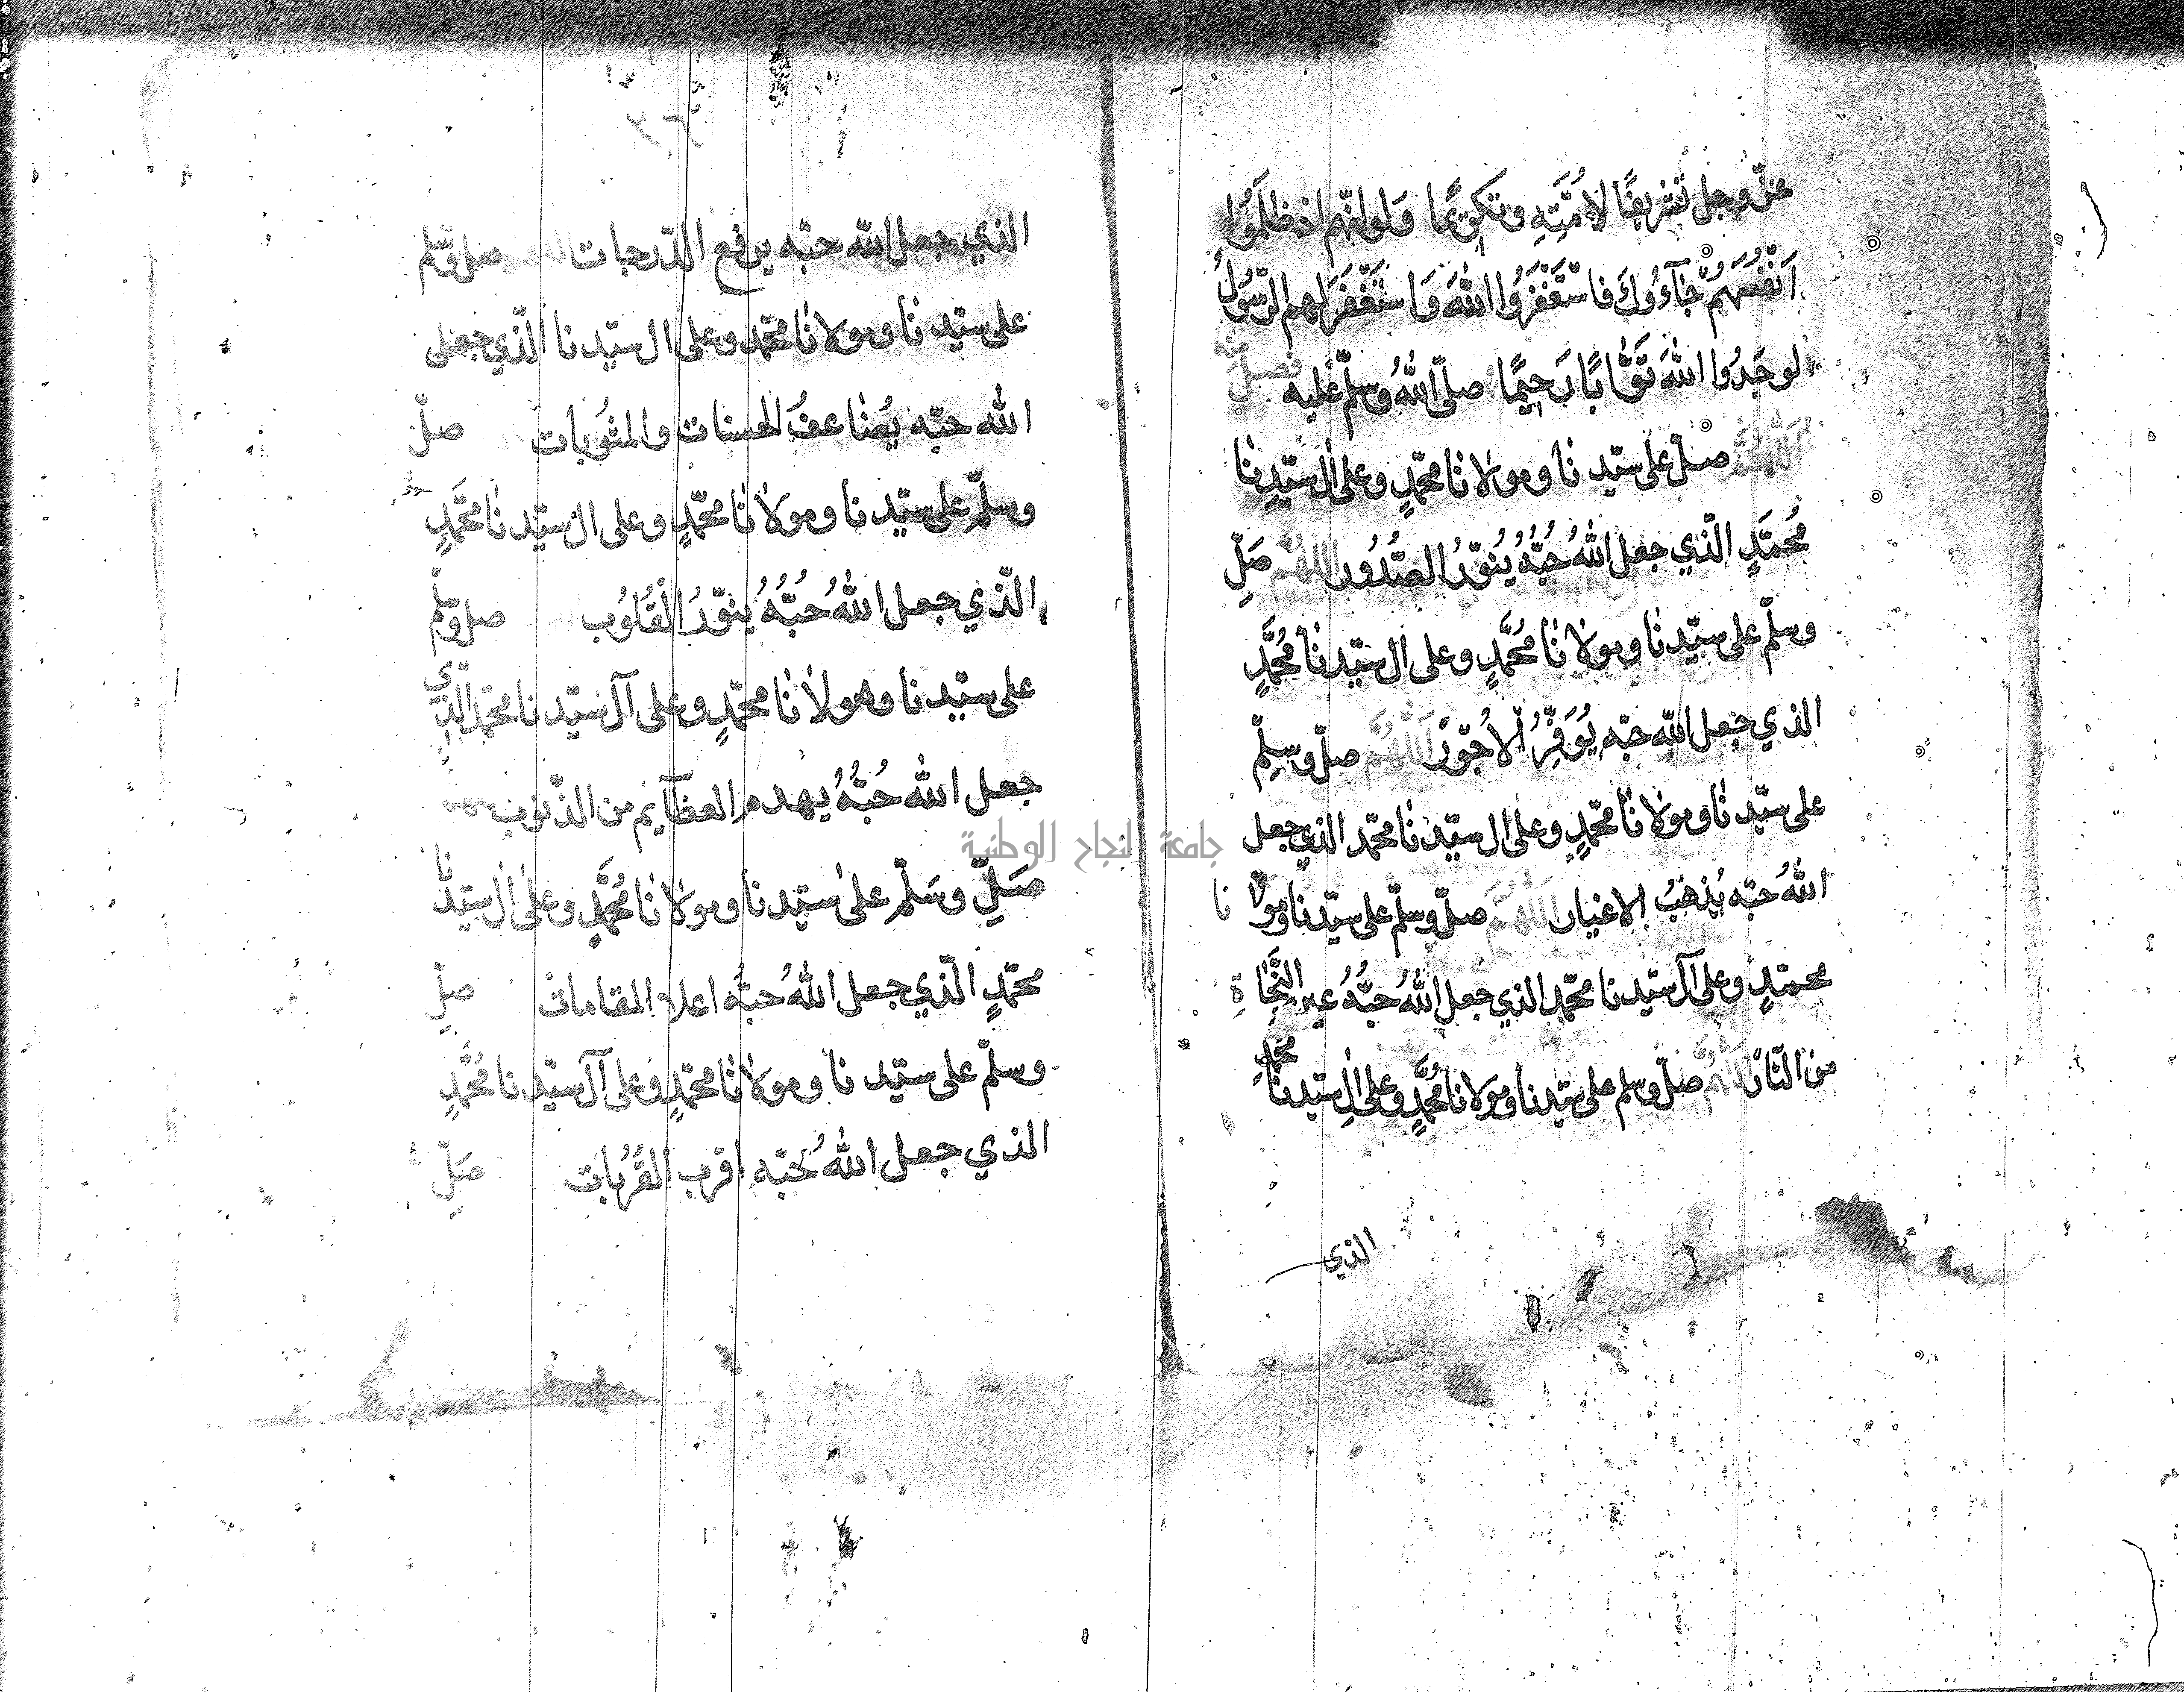 عزّ وجل تشريفًا لأمّتِهِ وتكريمًا ولو انّهم اذ ظلَمُوا
اَنْفُسَهُمْ جَآءُوكَ فاسْتَغْفَرُوا اللهَ وَاسْتَغْفَرَ لهم الرّسُولُ
لوجَدُوا اللهَ تَوَّابًا رَحِيمًا صلّى اللهُ وسلّم عليه فصل منه
اَللّٰهُمَّ صلّ على سيّدنا ومولانا محمّدٍ وعلى ال سيّدِنا
مُحمّدٍ الّذي جعل اللهُ حُبُّهُ يُنوّرُ الصُّدُور اللهُمَّ صَلِّ
وسلّم على سيّدنا ومولانا مُحَمَّدٍ وعلى ال سيّدنا مُحَمَّدٍ
الذي جعل الله حبّه يُوَفِّرُ الأُجُوْرَ اَللّٰهُمَّ صلّ وسلّم
على سيّدنا ومولانا محمّدٍ وعلى ال سيّدنا محمّد الذي جعل
اللهُ حبّه يُذهبُ الاغيار اَللّٰهُمَّ صلّ وسلّم على سيّدنا ومولانا
محمّدٍ وعلى آل سيّدنا محمّدٍ الذي جعل اللهُ حبُّهُ عين النَّجَاة
من النّار اَللّٰهُمَّ صلّ وسلم على سيّدنا ومولانا مُحَمَّدٍ وعلى ال سيّدنا محمّدٍ
الذي
٣٦
الذي جعل الله حبّه يرفع الدّرجات صل وسّلم
على سيّدنا ومولانا محمّد وعلى ال سيّدنا الّذي جعل
الله حبّه يُضاعفُ الحسنات والمثُوبات صلّ
وسلّم على سيّدنا ومولانا محمّدٍ وعلى ال سيّدنا محَمَّدٍ
الّذي جعل اللهُ حُبُّهُ ينوّرُ الْقُلُوب صل وسلّم
على سيّدنا ومولانا محمّدٍ وعلى آل سيّدنا محمّد الّذي
جعل الله حُبُّهُ يهدم العظآيم من الذّنوب
صَلِّ وسَلّم على سيّدنا ومولانا مُحَمَّدٍ وعلى ال سيّدنا
محمّدٍ الّذي جعل اللهُ حبُّه اعلا المقامات صلّ
وسلّم على سيّدنا ومولانا محمّدٍ وعلى آل سيّدنا مُحَمَّدٍ
الذي جعل اللهُ حُبّه اقرب القُرُبات صَلّ
جامعة النجاح الوطنية